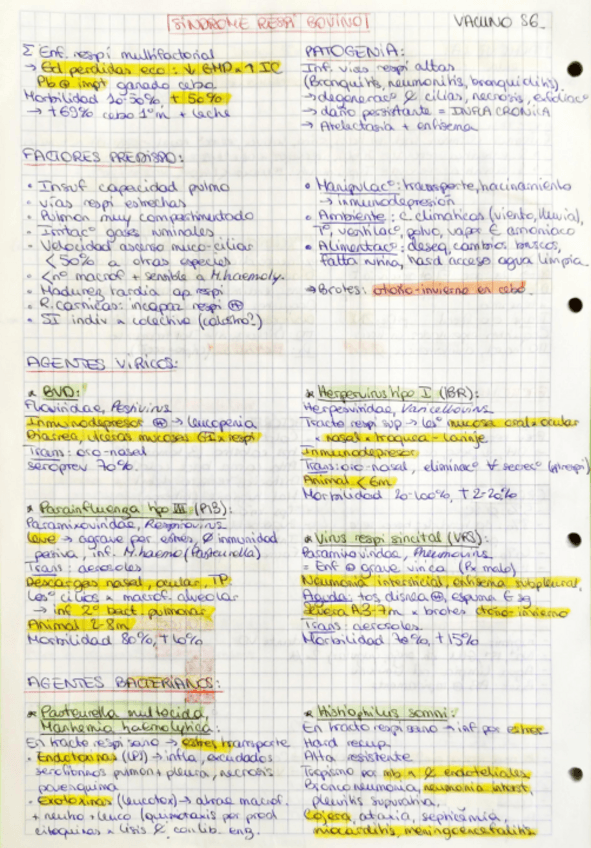 SÍNDROME RESPI BOVINO
VACUNO S6.
Σ Enf. respi multifactorial
→ Gd perdidas eco: ↓ GMD x ↑ IC
Pb ⊕ impt ganado cebo
Morbilidad 10-50%, † 50%
→ †69% cebo 1º m + leche
PATOGENIA:
Inf. vías respi altas
(Bronquitis, neumonitis, bronquiolitis).
→ degenerac° & cilias, necrosis, exfoliac°
→ daño persistante = INFRA CRONICA
→ Atelectasia + enfisema
FACTORES PREDISPO:
• Insuf capacidad pulmo
• vías respi estrechas
• Pulmon muy compartimentado
• Irritac° gases ruminales
• Velocidad ascenso muco-ciliar
<50% a otras especies
• <nº macrof + sensible a M.haemoly.
• Madurez tardia ap respi
• R. carnicas: incapaz respi ⊕
• SI indiv x colectivo (calostro?)
• Manipulac°: transporte, hacinamiento
→ inmunodepresion
• Ambiente: c. climaticas (viento, lluvia),
Tº, ventilac°, polvo, vapor & amoniaco
• Alimentac°: deseq, cambios bruscos,
falta rumia, hard acceso agua limpia.
→ Brotes: otoño-invierno en cebo.
AGENTES VÍRICOS:
* BVD:
Flaviviridae, Pestivirus
Inmunodepresor ⊕ → leucopenia
Diarrea, ulceras mucosas GI x respi
Trans: oro-nasal
seroprev 70%.
* Herpesvirus tipo I (IBR):
Herpesviridae, Varicellovirus
Tracto respi sup → les° mucosa oral x ocular
x nasal x traquea - laringe
Inmunodepresor
Trans: oro-nasal, eliminac° ∀ secrec°
Animal <6m
Morbilidad 20-100%, † 2-20%
* Parainfluenza tipo III (PI3):
Paramixoviridae, Respirovirus
Leve → agrave por estres, ∅ inmunidad
pasiva, inf. M.haemo (Pasteurella)
Trans: aerosoles
Descargas nasal, ocular, TP.
Les° cilios x macrof. alveolar
→ inf. 2º bact. pulmonar
Animal 2-8m
Morbilidad 80%, † 10%
* Virus respi sincital (VRS):
Paramixoviridae, Pneumovirus
= Enf ⊕ grave vírica (Px malo)
Neumonía intersticial, enfisema subpleural.
Aguda: tos, disnea ⊕, espuma & sg
Ternera 3-7m x brotes otoño-invierno
Trans: aerosoles
Morbilidad 70%, † 15%
AGENTES BACTERIANOS:
* Pasteurella multocida,
Manhemia haemolytica:
En tracto respi sano → estres, transporte
• Endotoxinas (LPS) → infla, exudados
serofibrinos pulmon + pleura, necrosis
parenquima
• Exotoxinas (leucotox) → atrae macrof.
+ neutro + leuco (quimiotaxis por prod
citoquinas x lisis & con lib. enz.
* Histiophilus somni:
En tracto respi sano → inf por estres
Hard recup.
Alta resistente
Tropismo por mb n & endoteliales.
Bronconeumonia, neumonia interst,
pleuritis supurativa.
Cojera, ataxia, septicemia,
miocarditis, meningoencefalitis